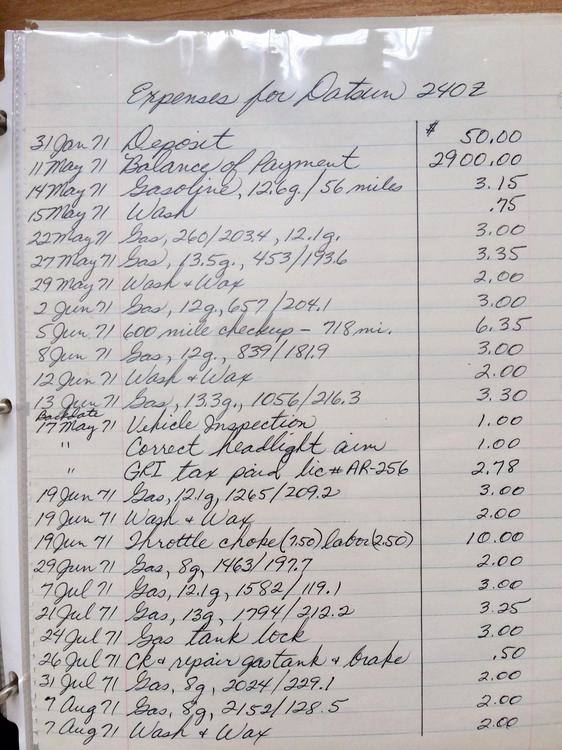 Expenses for Datsun 240Z
31 Jan 71 Deposit $ 50.00
11 May 71 Balance of Payment 2900.00
14 May 71 Gasoline, 12.6g./56 miles 3.15
15 May 71 Wash .75
22 May 71 Gas, 260/203.4, 12.1g. 3.00
27 May 71 Gas, 13.5g., 453/193.6 3.35
29 May 71 Wash & Wax 2.00
2 Jun 71 Gas, 12g., 657/204.1 3.00
5 Jun 71 600 mile checkup - 718 mi. 6.35
8 Jun 71 Gas, 12g., 839/181.9 3.00
12 Jun 71 Wash & Wax 2.00
13 Jun 71 Gas, 13.3g., 1056/216.3 3.30
Backdate
17 May 71 Vehicle Inspection 1.00
" Correct headlight aim 1.00
" GRI tax paid lic # AR-256 2.78
19 Jun 71 Gas, 12.1g, 1265/209.2 3.00
19 Jun 71 Wash & Wax 2.00
19 Jun 71 Throttle choke (7.50) labor (2.50) 10.00
29 Jun 71 Gas, 8g, 1463/197.7 2.00
7 Jul 71 Gas, 12.1g, 1582/119.1 3.00
21 Jul 71 Gas, 13g, 1794/212.2 3.25
24 Jul 71 Gas tank lock 3.00
26 Jul 71 Ck & repair gas tank & brake .50
31 Jul 71 Gas, 8g, 2024/229.1 2.00
7 Aug 71 Gas, 8g, 2152/128.5 2.00
7 Aug 71 Wash & Wax 2.00